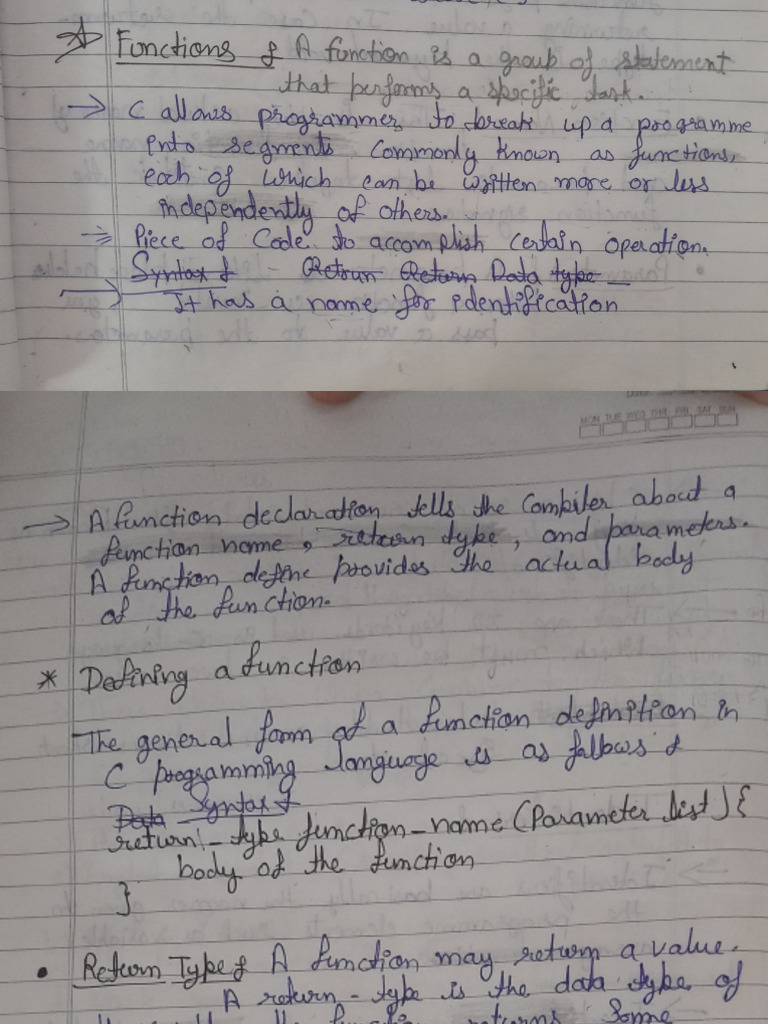 Functions :- A function is a group of statement
that performs a specific task.
→ C allows programmer to break up a programme
into segments commonly known as functions,
each of which can be written more or less
independently of others.
⇒ Piece of Code to accomplish certain operation.
Syntax :- Retrun Return Data type
→ It has a name for identification
MON TUE WED THU FRI SAT SUN
→ A function declaration tells the Compiler about a
function name, return type, and parameters.
A function define provides the actual body
of the function.
* Defining a function
The general form of a function definition in
C programming language is as follows :-
Data Syntax :-
return-type function-name (Parameter list) {
body of the function
}
• Return Type :- A function may return a value.
A return-type is the data type of
the returns Some